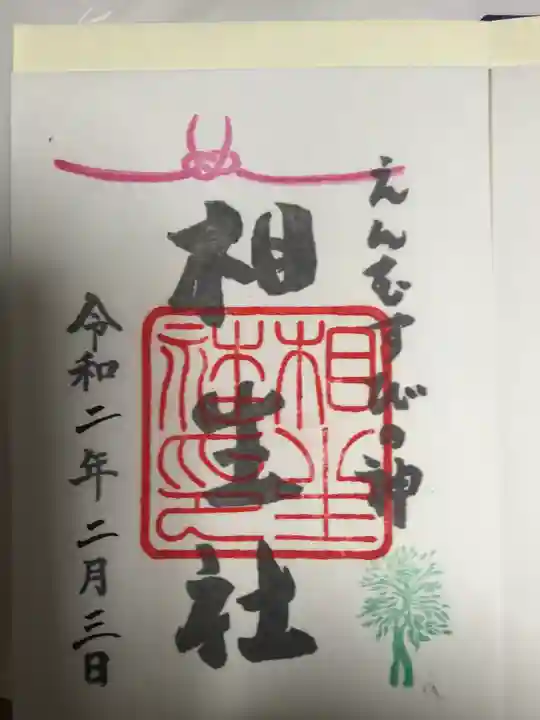 えんむすびの神
相生社
相生
社印
令和二年二月三日